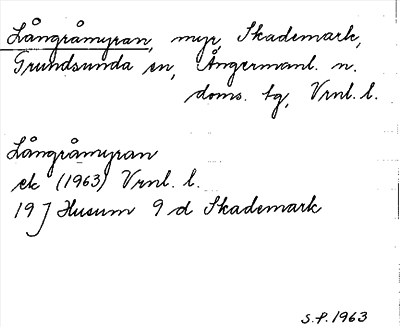 Långråmyran, myr, Skademark,
Grundsunda sn, Ångermanl. n.
doms. tg, Vrnl. l.
Långråmyran
ek (1963) Vrnl. l.
19 J Husum 9 d Skademark
S.P. 1963